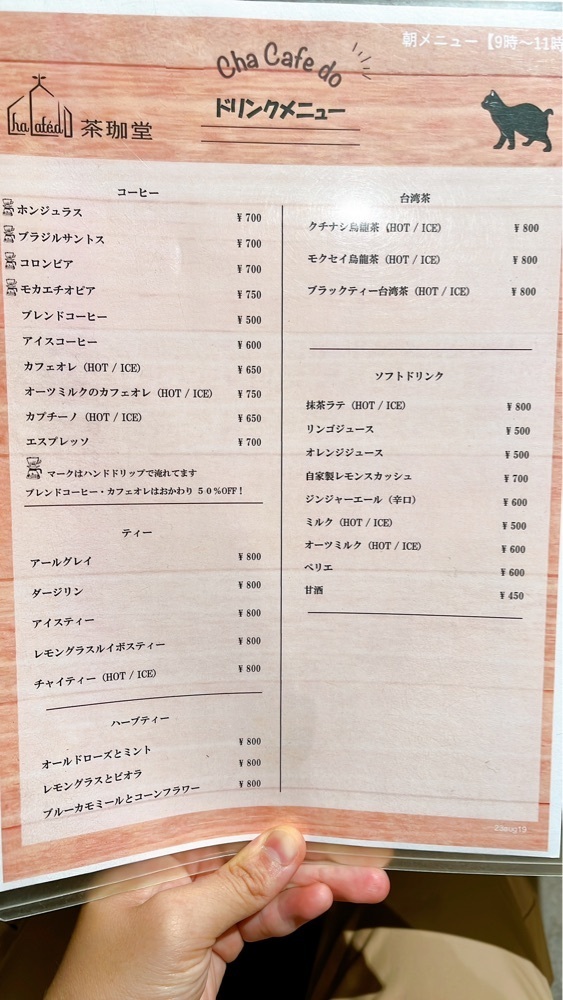 朝メニュー【9時〜11時
Cha Cafe do
ドリンクメニュー
茶珈堂
コーヒー
ホンジュラス ¥700
ブラジルサントス ¥700
コロンビア ¥700
モカエチオピア ¥750
ブレンドコーヒー ¥500
アイスコーヒー ¥600
カフェオレ（HOT / ICE） ¥650
オーツミルクのカフェオレ（HOT / ICE） ¥750
カプチーノ（HOT / ICE） ¥650
エスプレッソ ¥700
マークはハンドドリップで淹れてます
ブレンドコーヒー・カフェオレはおかわり ５０%OFF！
ティー
アールグレイ ¥800
ダージリン ¥800
アイスティー ¥800
レモングラスルイボスティー ¥800
チャイティー（HOT / ICE） ¥800
ハーブティー
オールドローズとミント ¥800
レモングラスとビオラ ¥800
ブルーカモミールとコーンフラワー ¥800
台湾茶
クチナシ烏龍茶（HOT / ICE） ¥800
モクセイ烏龍茶（HOT / ICE） ¥800
ブラックティー台湾茶（HOT / ICE） ¥800
ソフトドリンク
抹茶ラテ（HOT / ICE） ¥800
リンゴジュース ¥500
オレンジジュース ¥500
自家製レモンスカッシュ ¥700
ジンジャーエール（辛口） ¥600
ミルク（HOT / ICE） ¥500
オーツミルク（HOT / ICE） ¥600
ペリエ ¥600
甘酒 ¥450